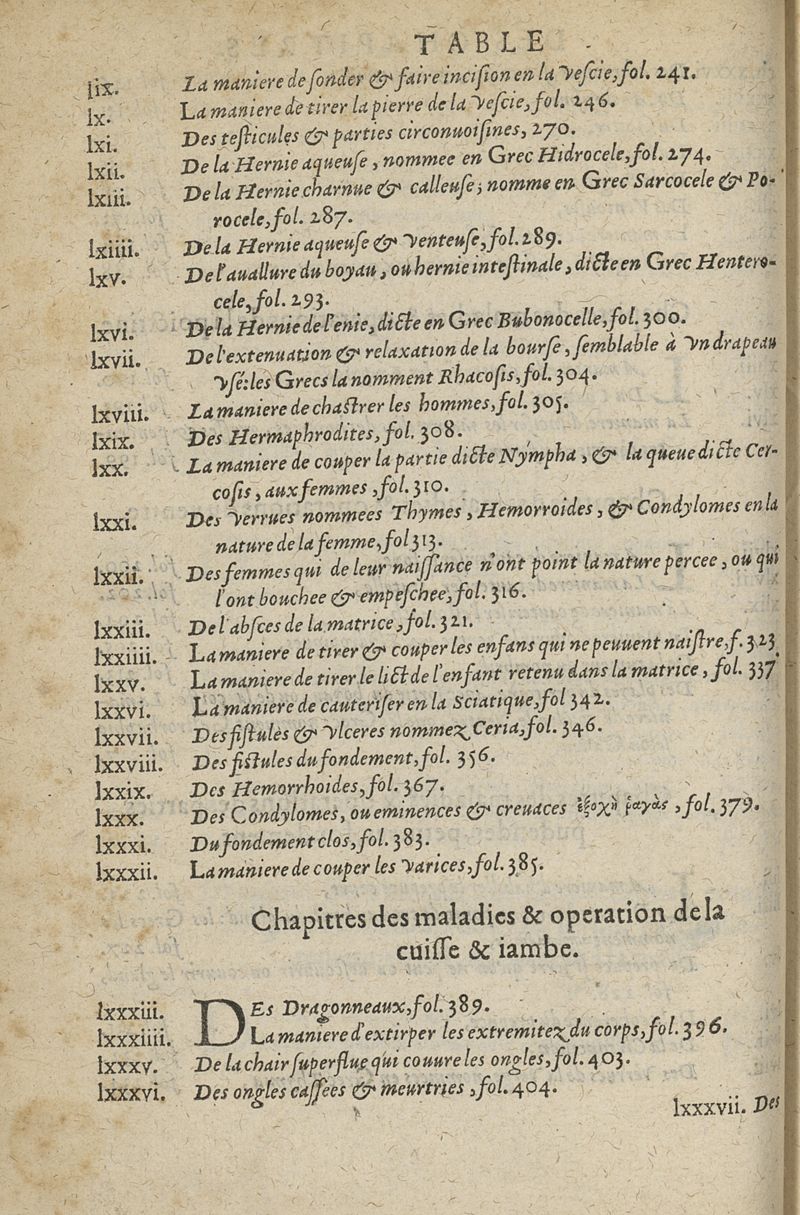 TABLE
lix. La maniere de ſonder & faire inciſion en la Veſcie, fol. 241.
lx. La maniere de tirer la pierre de la Veſcie, fol. 246.
lxi. Des teſticules & parties circonuoiſines, 270.
lxii. De la Hernie aqueuſe, nommee en Grec Hidrocele, fol. 274.
lxiii. De la Hernie charnue & calleuſe, nomme en Grec Sarcocele & Po-
rocele, fol. 287.
lxiiii. De la Hernie aqueuſe & Venteuſe, fol. 289.
lxv. De l'auallure du boyau, ou hernie inteſtinale, dicte en Grec Hentero-
cele, fol. 293.
lxvi. De la Hernie de l'enie, dicte en Grec Bubonocelle, fol. 300.
lxvii. De l'extenuation & relaxation de la bourſe, ſemblable à Vn drapeau
Vſé: les Grecs la nomment Rhacoſis, fol. 304.
lxviii. La maniere de chaſtrer les hommes, fol. 305.
lxix. Des Hermaphrodites, fol. 308.
lxx. La maniere de couper la partie dicte Nympha, & la queue dicte Cer-
coſis, aux femmes, fol. 310.
lxxi. Des Verrues nommees Thymes, Hemorroides, & Condylomes en la
nature de la femme, fol 313.
lxxii. Des femmes qui de leur naiſſance n'ont point la nature percee, ou qui
l'ont bouchee & empeſchee, fol. 316.
lxxiii. De l'abſces de la matrice, fol. 321.
lxxiiii. La maniere de tirer & couper les enfans qui ne peuuent naiſtre, f. 323
lxxv. La maniere de tirer le lict de l'enfant retenu dans la matrice, fol. 337
lxxvi. La maniere de cauteriſer en la Sciatique, fol 342.
lxxvii. Des fiſtules & Vlceres nommez Ceria, fol. 346.
lxxviii. Des fiſtules du fondement, fol. 356.
lxxix. Des Hemorrhoides, fol. 367.
lxxx. Des Condylomes, ou eminences & creuaces , fol. 379.
lxxxi. Du fondement clos, fol. 383.
lxxxii. La maniere de couper les Varices, fol. 385.
Chapitres des maladies & operation de la
cuiſſe & iambe.
lxxxiii. DEs Dragonneaux, fol. 389.
lxxxiiii. La maniere d'extirper les extremitez du corps, fol. 396.
lxxxv. De la chair ſuperflue qui couure les ongles, fol. 403.
lxxxvi. Des ongles caſſees & meurtries, fol. 404.
lxxxvii. Des